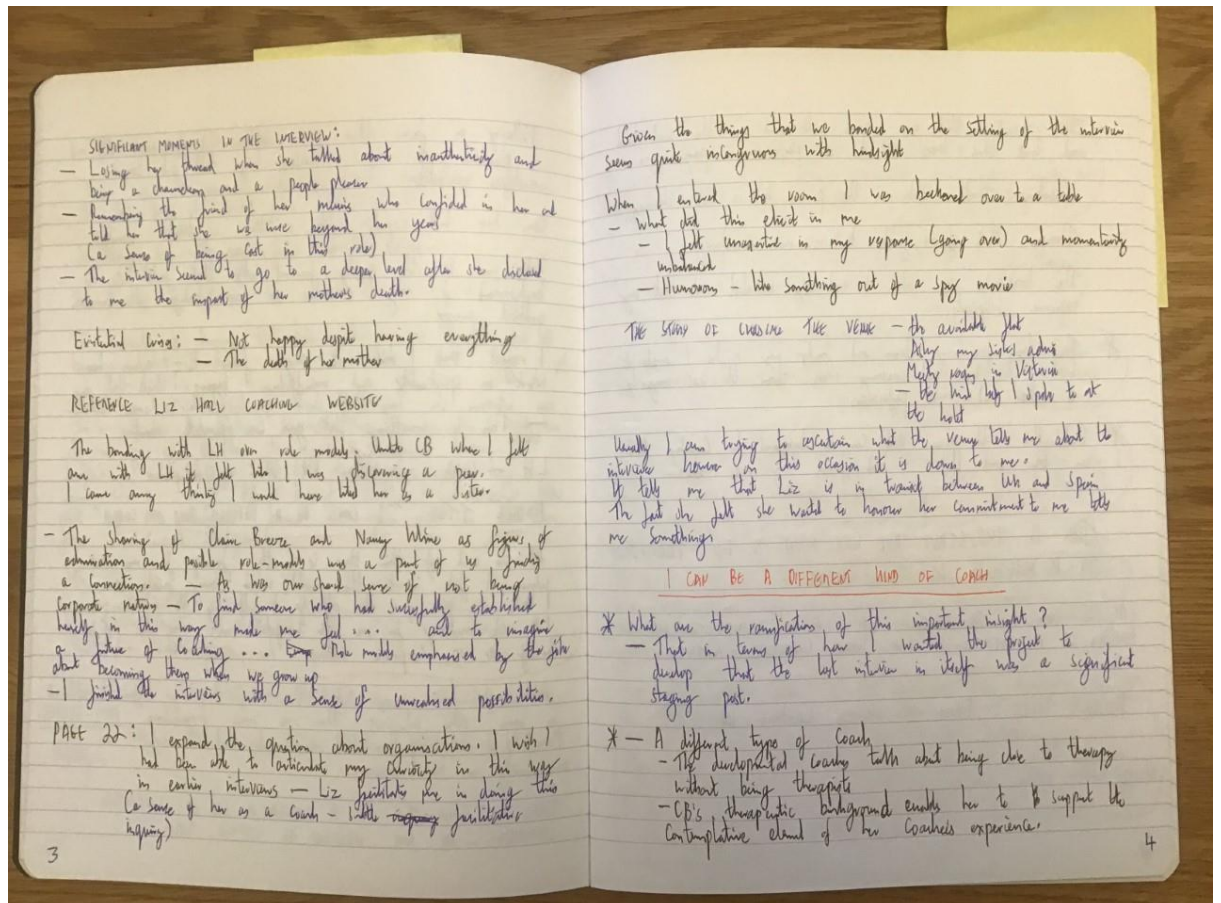 SIGNIFICANT MOMENTS IN THE INTERVIEW:
— Losing her thread when she talked about inauthenticity and
being a chameleon and a people pleaser
— Remembering the friend of her mum's who confided in her and
told her that she was wise beyond her years
(a sense of being cast in this role)
— The interview seemed to go to a deeper level after she disclosed
to me the impact of her mother's death.
Existential crises: — Not happy despite having everything
— The death of her mother
REFERENCE LIZ HALL COACHING WEBSITE
The bonding with LH over role models. Unlike CB when I felt
awe with LH it felt like I was discovering a peer.
I came away thinking I would have liked her as a sister.
— The sharing of Claire Breeze and Nancy Kline as figures of
admiration and possible role-models was a part of us finding
a connection. — As was our shared sense of not being
corporate natives — To find someone who had successfully established
herself in this way made me feel .... and to imagine
a future of Coaching ... Role models emphasised by the joke
about becoming them when we grow up
— I finished the interviews with a sense of unrealised possibilities.
PAGE 22: I expand the question about organisations. I wish I
had been able to articulate my curiosity in this way
in earlier interviews — Liz facilitates me in doing this
(a sense of her as a coach – subtle facilitative
inquiry)
3
Given the things that we bonded on the setting of the interview
seems quite incongruous with hindsight
When I entered the room I was beckoned over to a table
— What did this elicit in me
— I felt unassertive in my response (going over) and momentarily
unbalanced
— Humorous – like something out of a spy movie
THE STORY OF CHOOSING THE VENUE — the available flat
Asking my sister's advice
Meeting rooms in Victoria
— the kind lady I spoke to at
the hotel
Usually I am trying to ascertain what the venue tells me about the
interviewee however on this occasion it is down to me.
It tells me that Liz is in transit between UK and Spain
The fact she felt she wanted to honour her commitment to me tells
me something.
I CAN BE A DIFFERENT KIND OF COACH
* What are the ramifications of this important insight?
— That in terms of how I wanted the project to
develop that the last interview in itself was a significant
staging post.
* — A different types of Coach
- The developmental coaches talk about being close to therapy
without being therapists
- CB's therapeutic background enables her to support the
contemplative element of her Coachees experience.
4